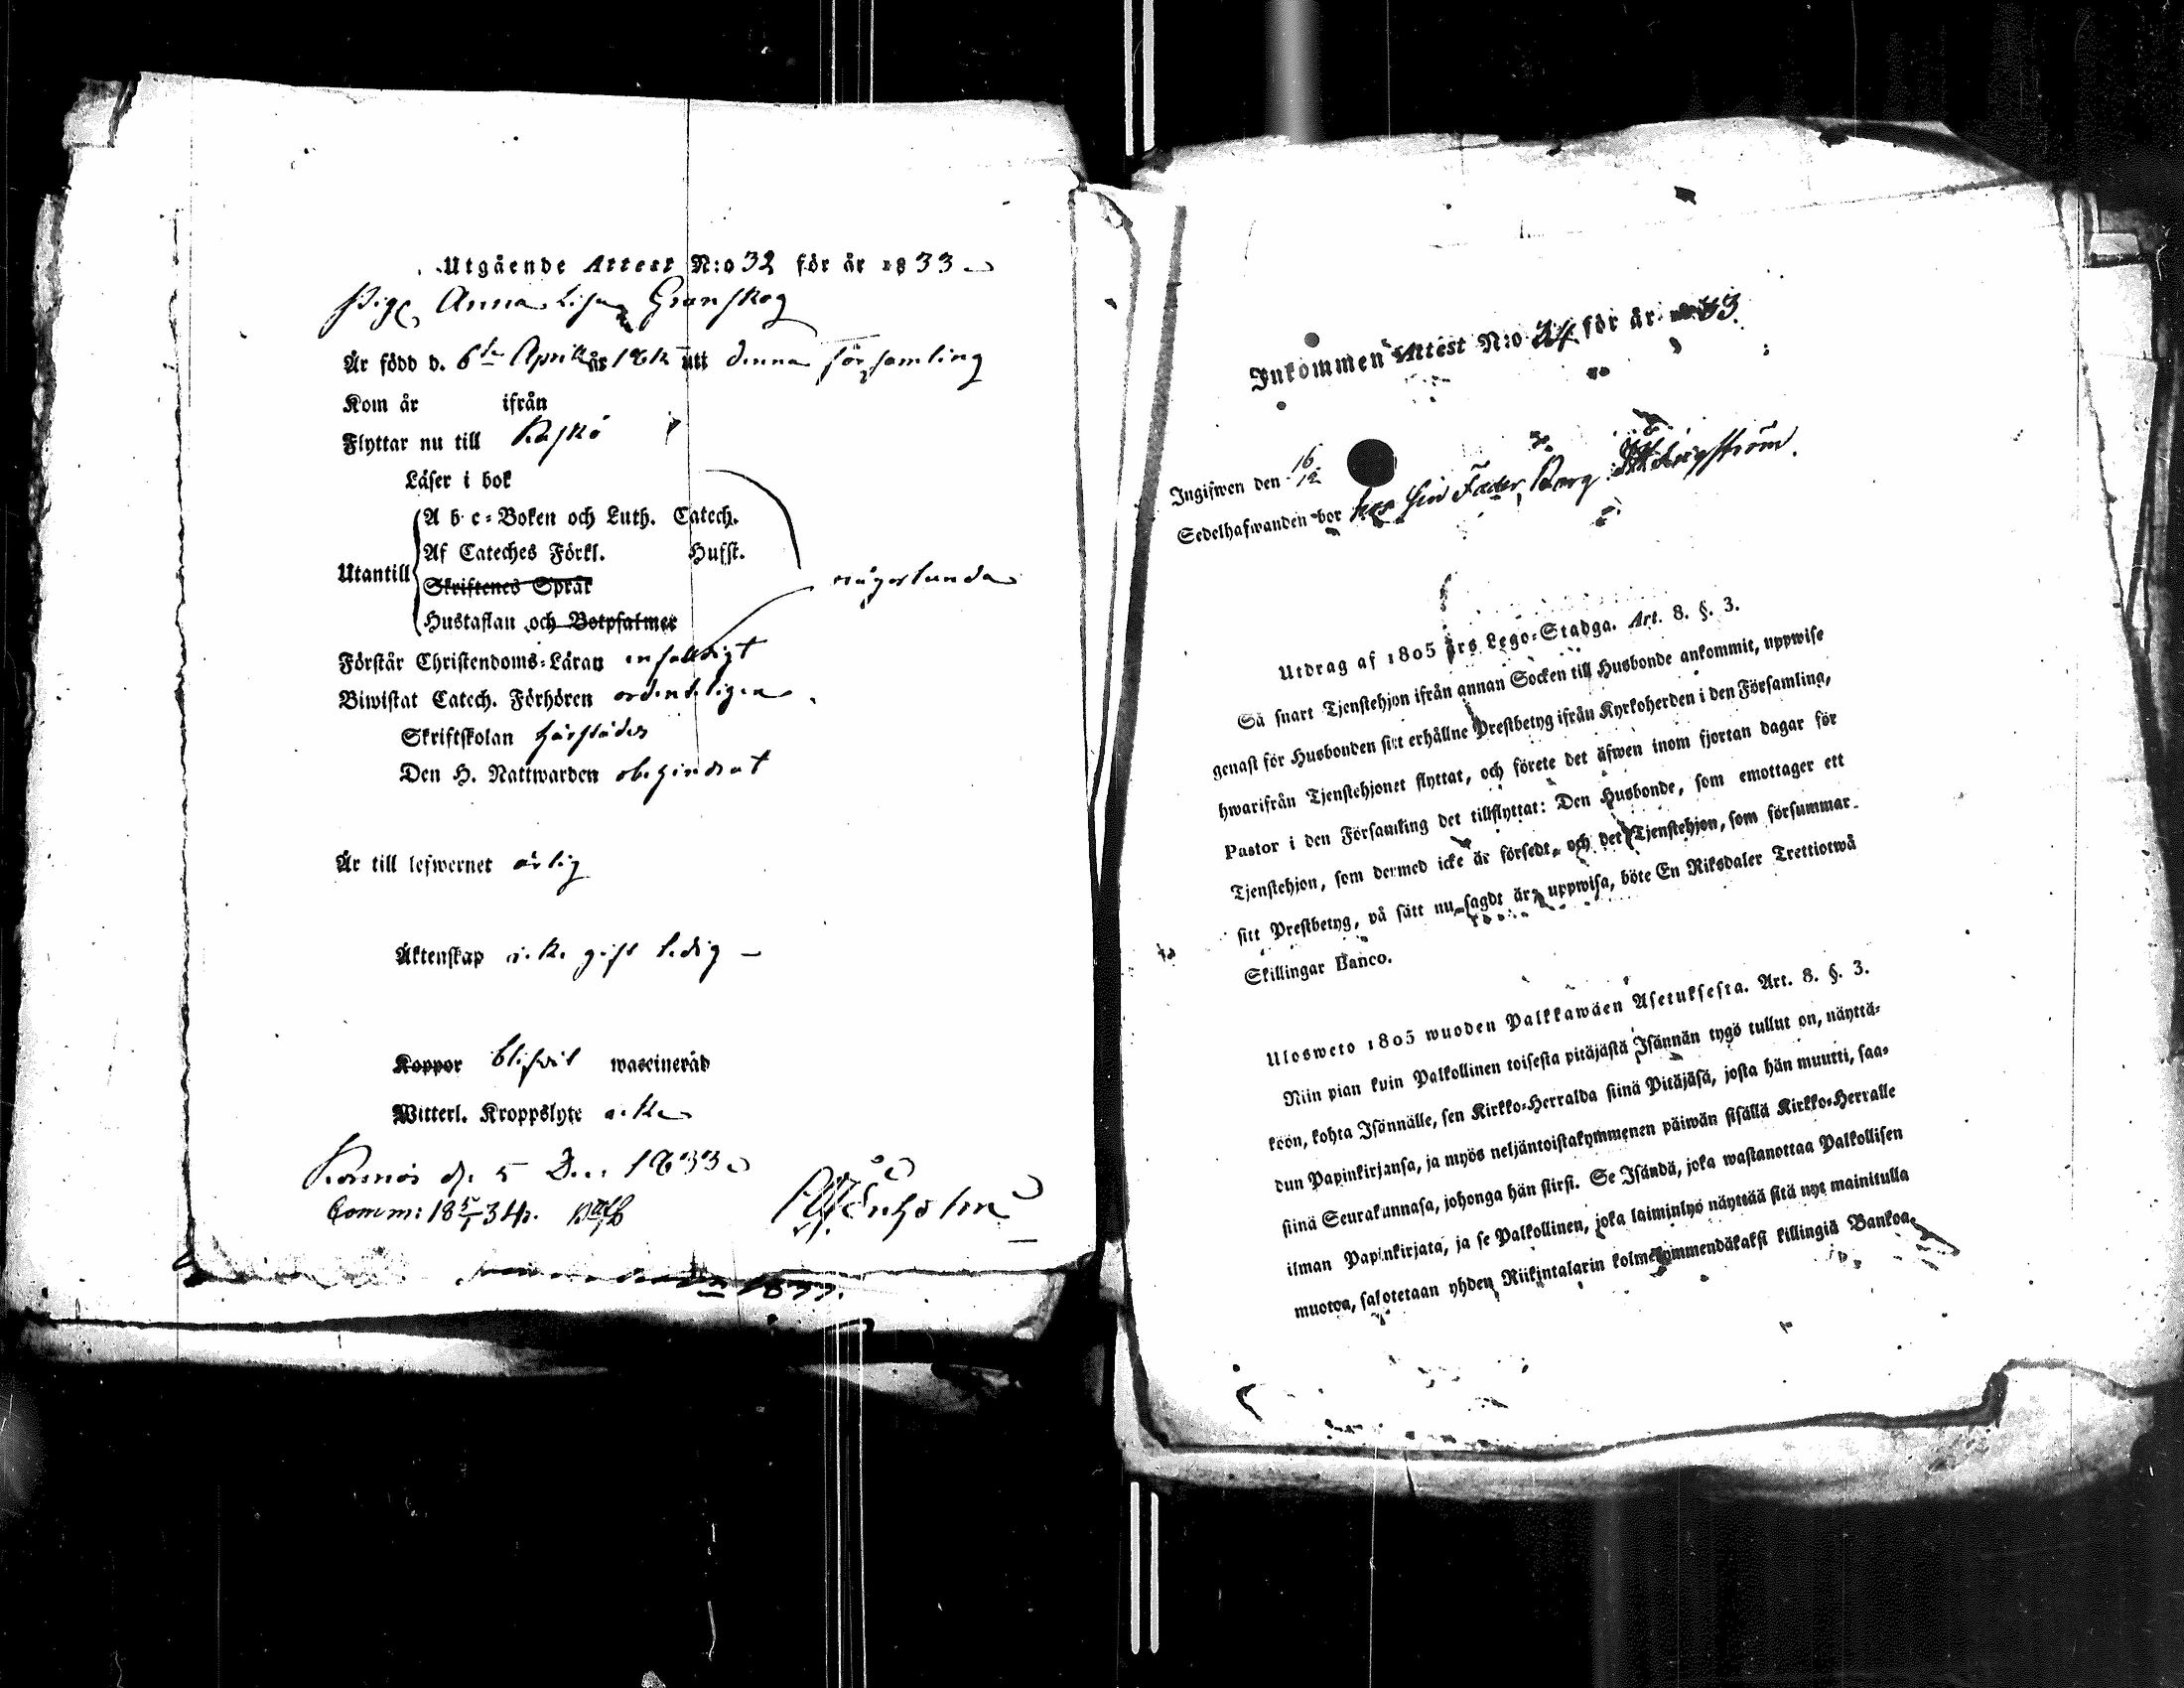 Utgående Attest N:o 32 för år 1833
Pig. Anna Lisa Granskog
Är född d. 6te April år 1812 uti denna församling
Kom år ifrån
Flyttar nu till Kaskö
Läser i bok
A b c-Boken och Luth. Catech.
Af Cateches Förkl. Husst.
Utantill
Skriftenes Språk
någorlunda
Hustaflan och Botpsalmer
Förstår Christendoms-Läran enfaldigt
Biwistat Catech. Förhören ordenteligen
Skriftskolan härstädes
Den H. Nattwarden obehindrat
Är till lefwernet ärlig
Äktenskap icke gift ledig
Koppor blifvit waccinerad
Witterl. Kroppslyte icke
d. 5 Dec. 1833
Comm: 18 5/1 34.
1833.
Inkommen Attest N:o 34 för år 1833.
Ingifwen den 16/12
Sedelhafwanden bor hos sin Fader Borg.
Utdrag af 1805 års Lego-Stadga. Art. 8. §. 3.
Så snart Tjenstehjon ifrån annan Socken till Husbonde ankommit, uppwise
genast för Husbonden sitt erhållne Prestbetyg ifrån Kyrkoherden i den Församling,
hwarifrån Tjenstehjonet flyttat, och förete det äfwen inom fjortan dagar för
Pastor i den Församling det tillflyttat: Den Husbonde, som emottager ett
Tjenstehjon, som dermed icke är försedt, och det Tjenstehjon, som försummar
sitt Prestbetyg, på sätt nu sagdt är, uppwisa, böte En Riksdaler Trettiotwå
Skillingar Banco.
Ulosweto 1805 wuoden Palkkawäen Asetuksesta. Art. 8. §. 3.
Niin pian kuin Palkollinen toisesta pitäjästä Isännän tygö tullut on, näyttä-
köön, kohta Isönnälle, sen Kirkko-Herralda siinä Pitäjäsä, josta hän muutti, saa-
dun Papinkirjansa, ja myös neljäntoistakymmenen päiwän sisällä Kirkko-Herralle
siinä Seurakunnasa, johonga hän siirsi. Se Isändä, joka wastanottaa Palkollisen
ilman Papinkirjata, ja se Palkollinen, joka laiminlyö näyttää sitä nyt mainitulla
muotoa, sakotetaan yhden Riikintalarin kolmekymmendäkaksi killingiä Bankoa.